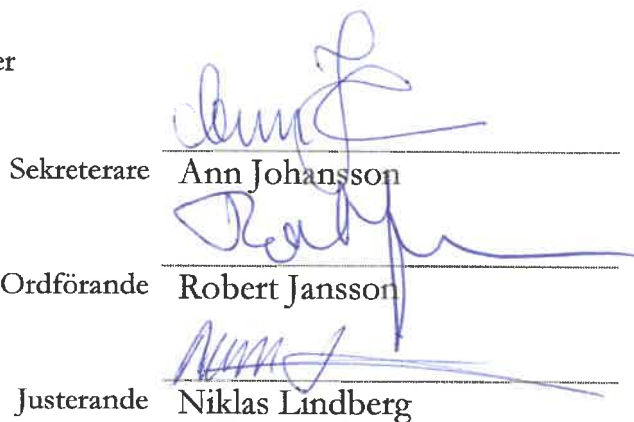 er
Sekreterare Ann Johansson
Ordförande Robert Jansson
Justerande Niklas Lindberg